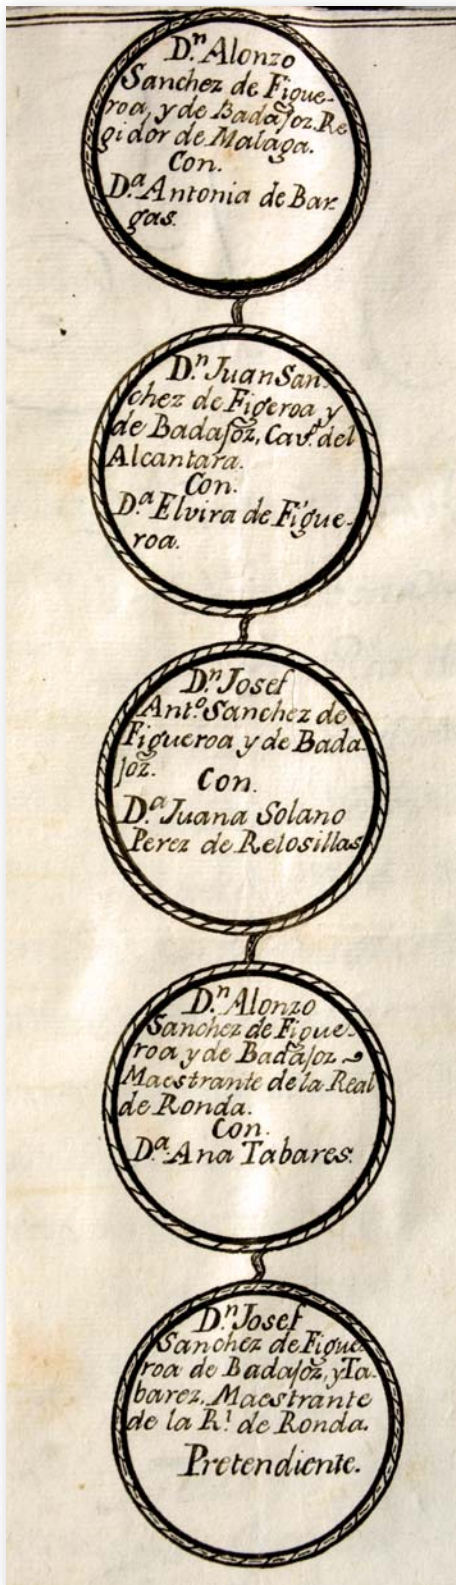 D.ⁿ Alonzo
Sanchez de Figue-
roa, y de Badajoz, Re
gidor de Malaga.
Con.
D.ª Antonia de Bar-
gas.
D.ⁿ Juan San-
chez de Figeroa y
de Badajoz, Cav.º del
Alcantara.
Con.
D.ª Elvira de Figue-
roa.
D.ⁿ Josef
Ant.º Sanchez de
Figueroa y de Bada-
joz.
Con.
D.ª Juana Solano
Perez de Relosillas
D.ⁿ Alonzo
Sanchez de Figue-
roa y de Badajoz
Maestrante de la Real
de Ronda.
Con.
D.ª Ana Tabares.
D.ⁿ Josef
Sanchez de Figue-
roa de Badajoz, y Ta-
barez, Maestrante
de la R.l de Ronda.
Pretendiente.